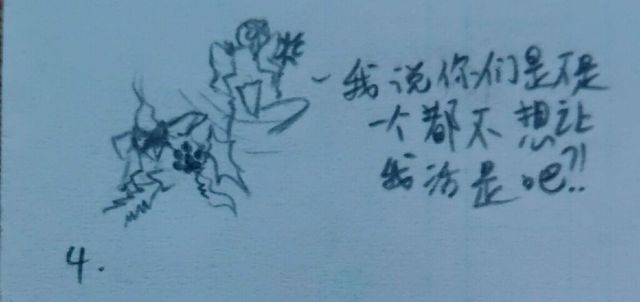 我说你们是不是
一个都不想让
我活是吧?!
4.